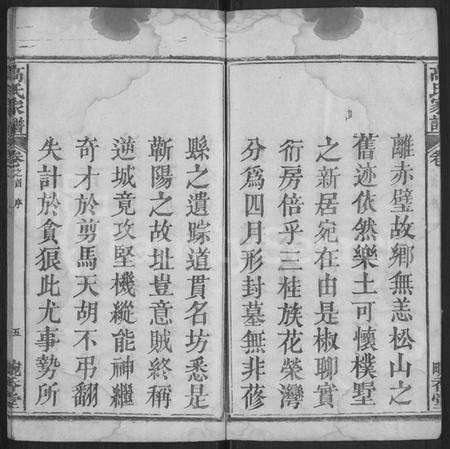 高氏家譜
卷
離赤璧故鄉無恙松山之
舊迹依然樂土可懷樸墅
之新居宛在由是椒聊實
衍房倍乎三桂族花縈灣
分爲四月形封墓無非蓚
縣之遺踪道貫名坊悉是
蘄陽之故址豈意賊終稱
逆城竟攻堅機縱能神繼
奇才於剪馬天胡不弔翻
失計於貪狼此尤事勢所
高氏家譜
卷之首 序
五